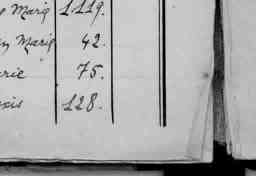 Marie 1119.
Marie 42.
rie 75.
xis 128.